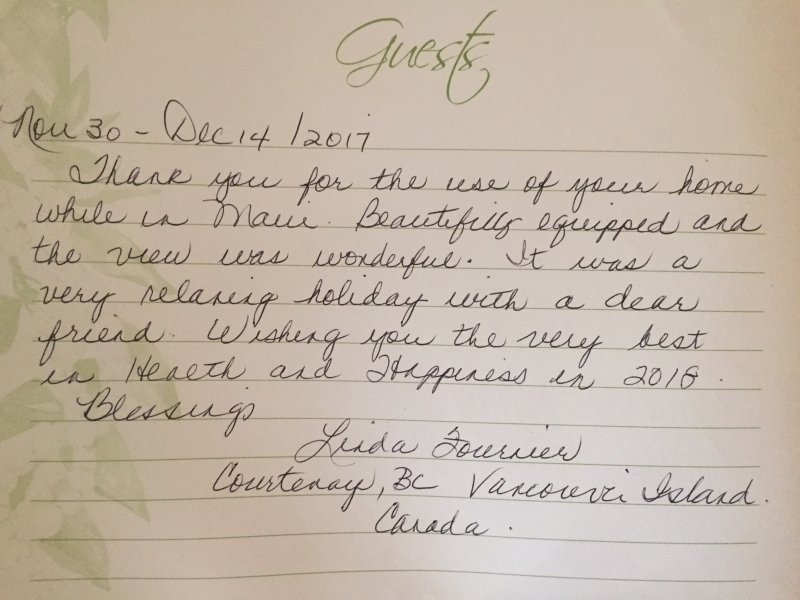 Guests
Nov 30 - Dec 14 / 2017
Thank you for the use of your home
while in Maui. Beautifully equipped and
the view was wonderful. It was a
very relaxing holiday with a dear
friend. Wishing you the very best
in Health and Happiness in 2018.
Blessings
Linda Fournier
Courtenay, BC Vancouver Island.
Canada.